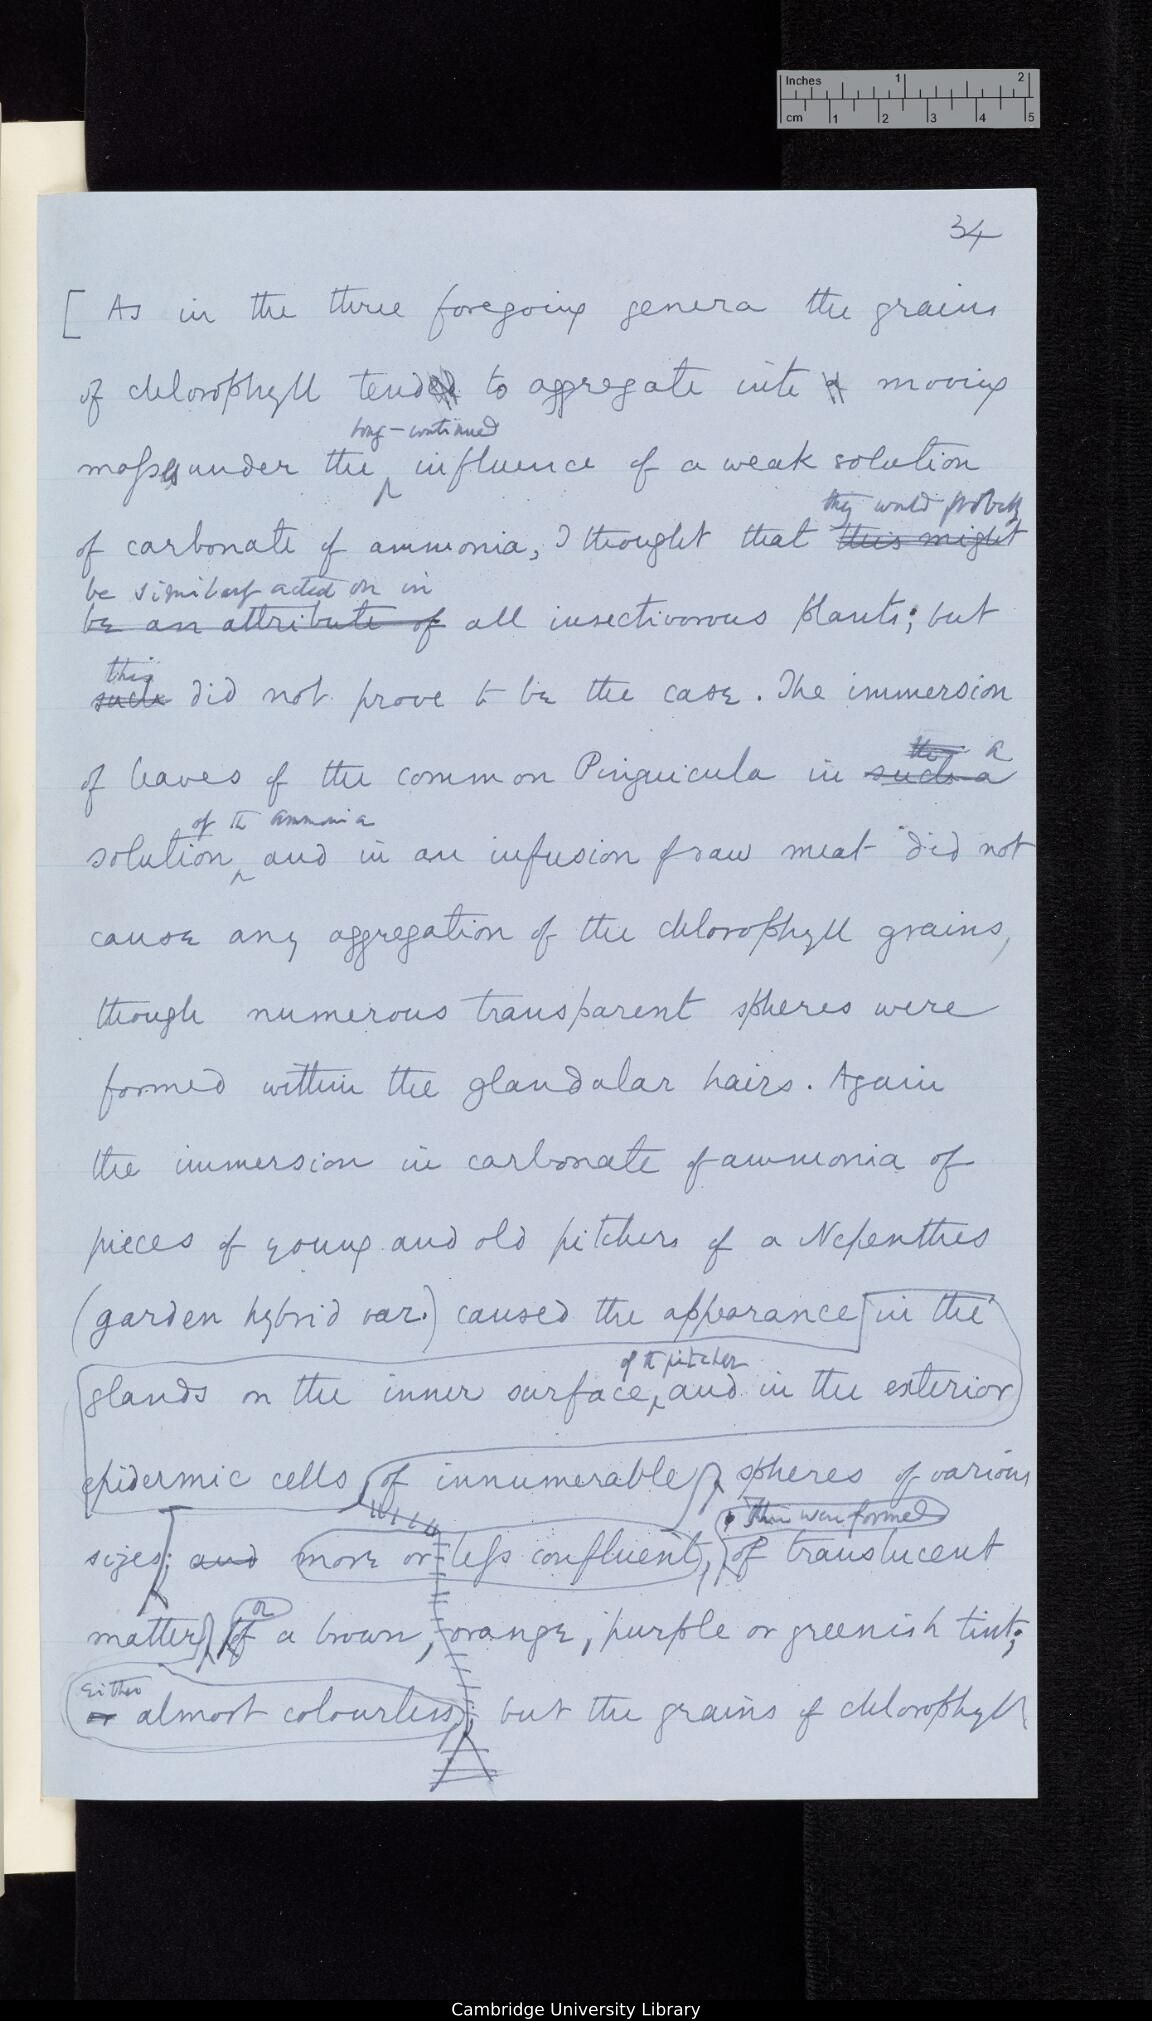 Inches 1 2
cm 1 2 3 4 5
34
[ As in the three foregoing genera the grains
of chlorophyll tend to aggregate into moving
long-continued
masses under the influence of a weak solution
they would probably
of carbonate of ammonia, I thought that this might
be similarly acted on in
be an attribute of all insectivorous plants; but
this
such did not prove to be the case. The immersion
of leaves of the common Pinguicula in such a
the a
of the ammonia
solution, and in an infusion of raw meat did not
cause any aggregation of the chlorophyll grains,
though numerous transparent spheres were
formed within the glandular hairs. Again
the immersion in carbonate of ammonia of
pieces of young and old pitchers of a Nepenthes
(garden hybrid var.) caused the appearance in the
of the pitcher
glands on the inner surface, and in the exterior
epidermic cells, of innumerable spheres of various
Then were formed
sizes; and more or less confluent, of translucent
or
matter, of a brown, orange, purple or greenish tint;
either
or almost colourless; but the grains of chlorophyll
Cambridge University Library